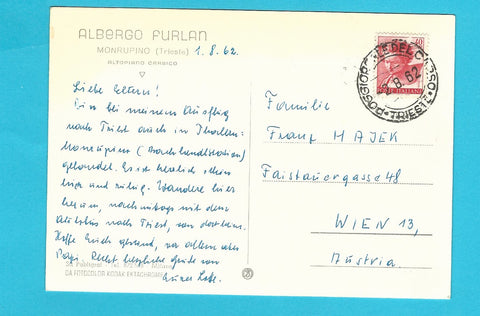 ALBERGO FURLAN
MONRUPINO (Trieste)
ALTOPIANO CARSICO
1.8.62
Liebe Eltern!
Bin bei meinem Ausflug
nach Triest auch in Italien-
Monrupino (
gelandet. Es ist herrlich schön
hier und ruhig. Wandere hier
herum, nachmittags mit dem
Autobus nach Triest, von dort heim.
Hoffe Euch gesund, vor allem aber
Papi. Recht herzliche Grüße von
Eurer
DA FOTOCOLOR KODAK EKTACHROME
POSTE ITALIANE
POGGIOREALE DEL CARSO
TRIESTE
8.62
Familie
Franz HAJEK
Faistauergasse 48
WIEN 13,
Austria.